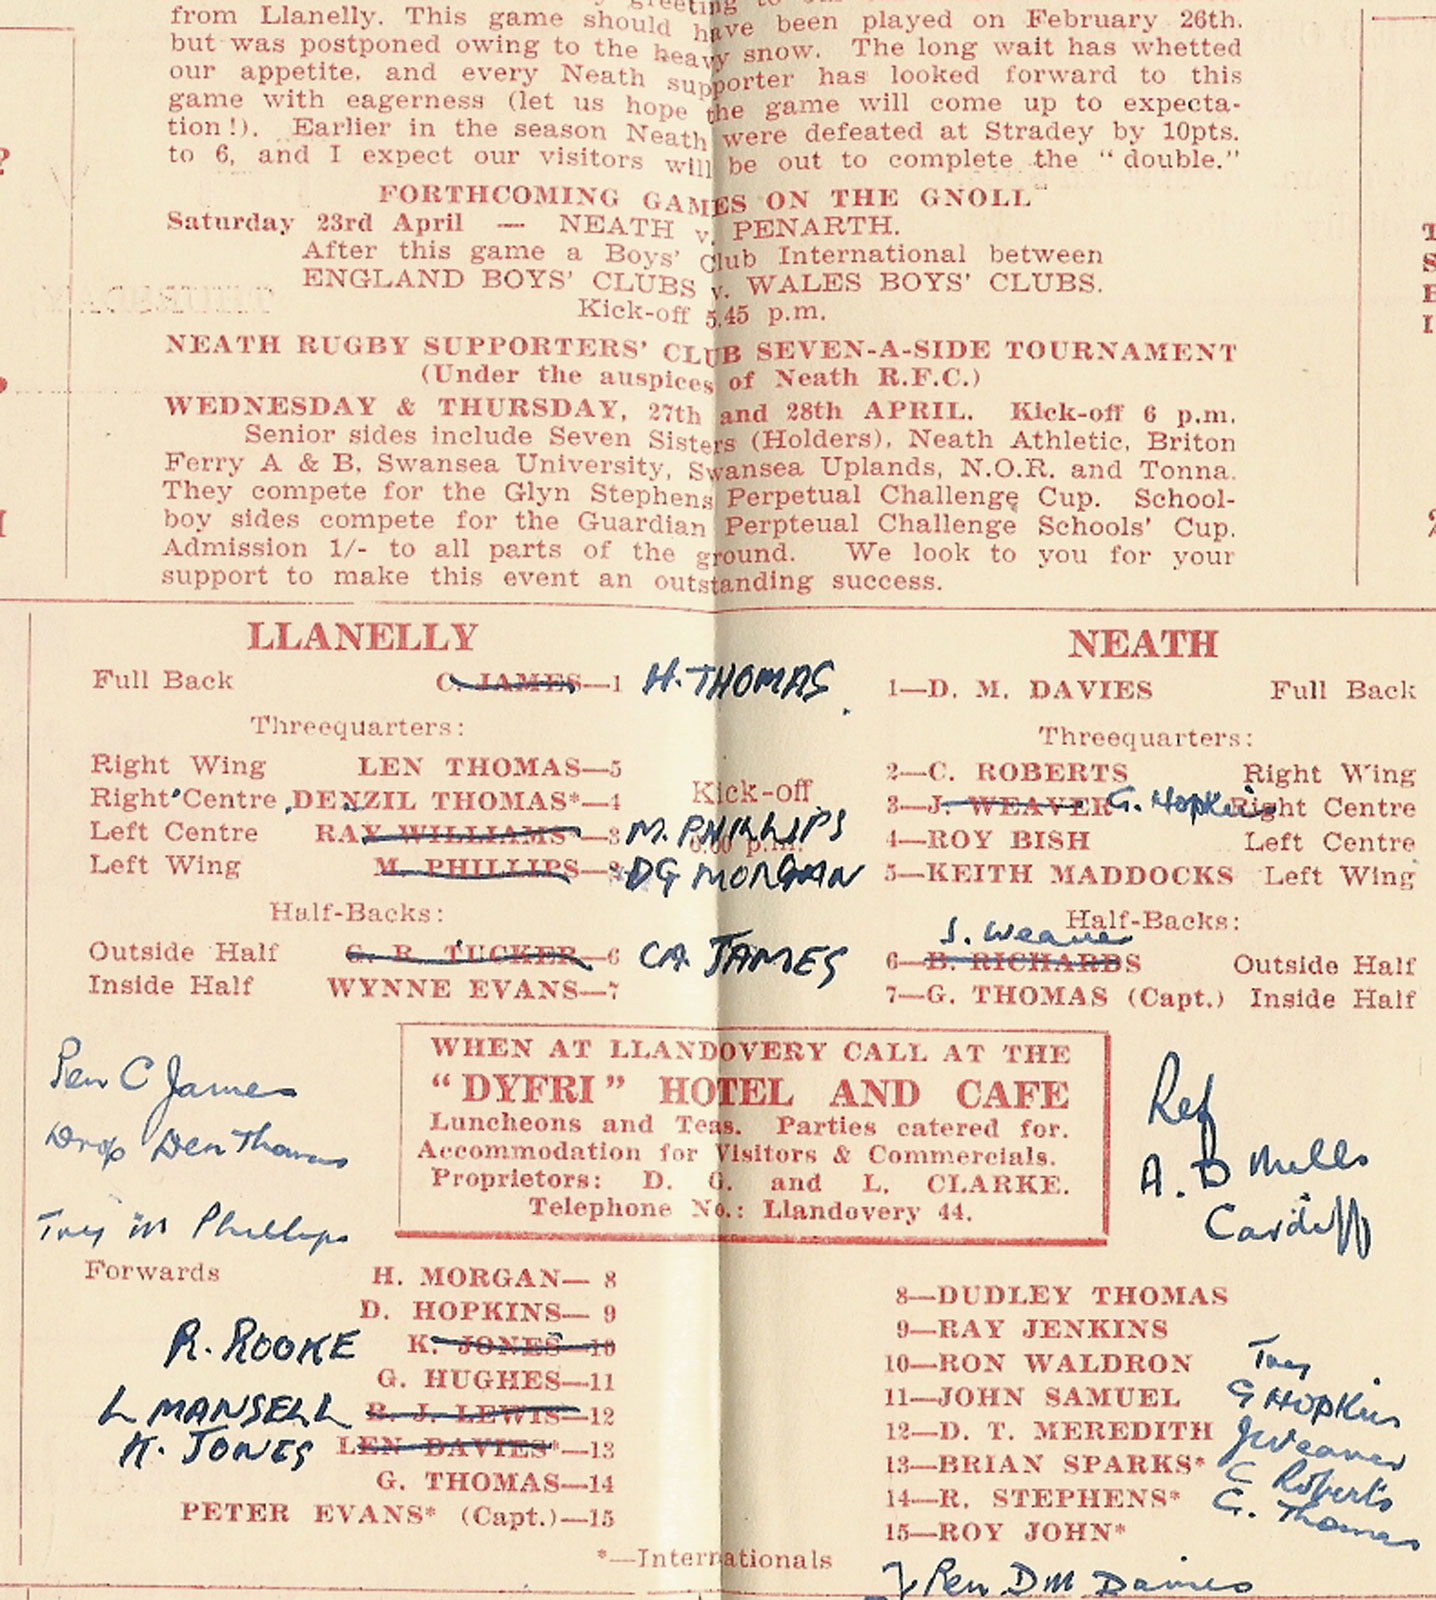 greeting to
from Llanelly. This game should have been played on February 26th.
but was postponed owing to the heavy snow. The long wait has whetted
our appetite, and every Neath supporter has looked forward to this
game with eagerness (let us hope the game will come up to expecta-
tion!). Earlier in the season Neath were defeated at Stradey by 10pts.
to 6, and I expect our visitors will be out to complete the “double.”
FORTHCOMING GAMES ON THE GNOLL
Saturday 23rd April — NEATH v. PENARTH.
After this game a Boys’ Club International between
ENGLAND BOYS’ CLUBS v. WALES BOYS’ CLUBS.
Kick-off 5.45 p.m.
NEATH RUGBY SUPPORTERS’ CLUB SEVEN-A-SIDE TOURNAMENT
(Under the auspices of Neath R.F.C.)
WEDNESDAY & THURSDAY, 27th and 28th APRIL. Kick-off 6 p.m.
Senior sides include Seven Sisters (Holders), Neath Athletic, Briton
Ferry A & B, Swansea University, Swansea Uplands, N.O.R. and Tonna.
They compete for the Glyn Stephens Perpetual Challenge Cup. School-
boy sides compete for the Guardian Perpteual Challenge Schools’ Cup.
Admission 1/- to all parts of the ground. We look to you for your
support to make this event an outstanding success.
LLANELLY
Full Back C. JAMES—1 H. THOMAS
Threequarters:
Right Wing LEN THOMAS—5
Right Centre DENZIL THOMAS*—4
Left Centre RAY WILLIAMS—3 M. PHILLIPS
Left Wing M. PHILLIPS—2 DG MORGAN
Kick-off
6.00 p.m.
Half-Backs:
Outside Half G. R. TUCKER—6 CA JAMES
Inside Half WYNNE EVANS—7
NEATH
1—D. M. DAVIES Full Back
Threequarters:
2—C. ROBERTS Right Wing
3—J. WEAVER G. Hopkins Right Centre
4—ROY BISH Left Centre
5—KEITH MADDOCKS Left Wing
Half-Backs:
J. Weaver
6—B. RICHARDS Outside Half
7—G. THOMAS (Capt.) Inside Half
WHEN AT LLANDOVERY CALL AT THE
“DYFRI” HOTEL AND CAFE
Luncheons and Teas. Parties catered for.
Accommodation for Visitors & Commercials.
Proprietors: D. G. and L. CLARKE.
Telephone No.: Llandovery 44.
Pen C James
Drop Den Thomas
Try M Phillips
Ref
A. D Mills
Cardiff
Forwards H. MORGAN— 8
D. HOPKINS— 9
R. ROOKE K. JONES—10
G. HUGHES—11
L MANSELL B. J. LEWIS—12
K. JONES LEN DAVIES*—13
G. THOMAS—14
PETER EVANS* (Capt.)—15
8—DUDLEY THOMAS
9—RAY JENKINS
10—RON WALDRON Try
11—JOHN SAMUEL G HOPKins
12—D. T. MEREDITH J Weaver
13—BRIAN SPARKS* C Roberts
14—R. STEPHENS* G. Thomas
15—ROY JOHN*
*—Internationals
Pen DM Davies